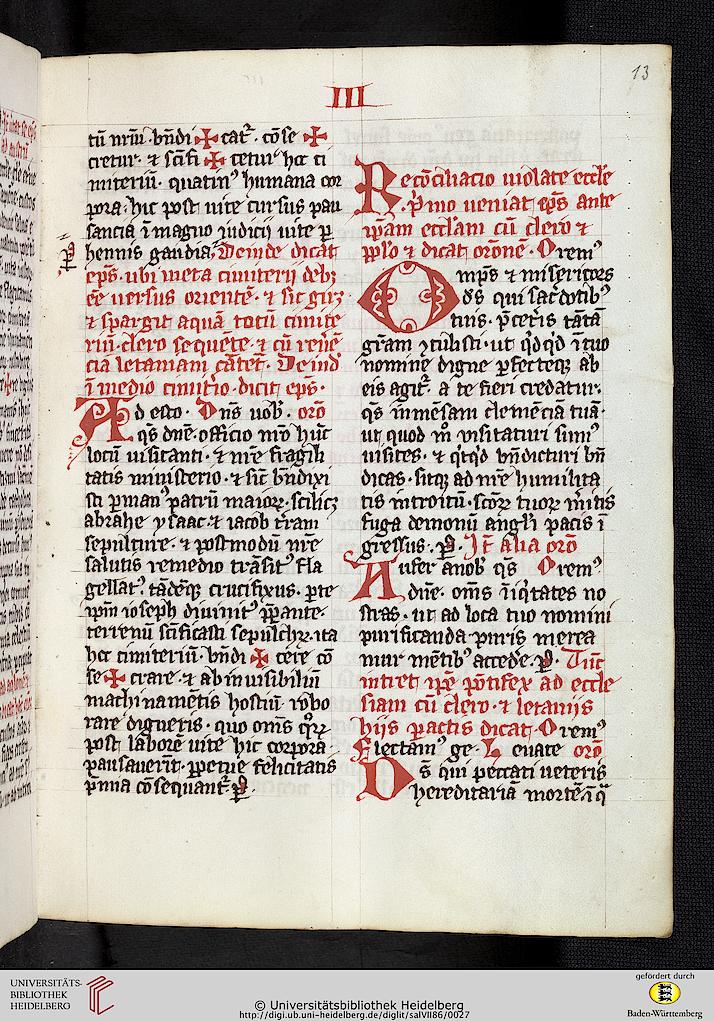 13
III
tū nrm̄. bn̄di ✠ cat᷒. cōse ✠
cretur. ⁊ scīfi ✠ cetur hoc ci
miteriū. quatin᷒ humana cor
pora. hic post uite cursus pau
sancia ī magno iudicij uite ꝑ
hennis gaudia. Deinde dicat
ep̄s. ubi meta cimiterij debꝫ
ēe uersus orientē. ⁊ sic girꝫ
⁊ spargit aquā totū cimite
riū. clero sequēte. ⁊ cū reuē
cia letaniam cātet. Deind
ī medio cimit̄io. dicit ep̄s.
Ad esto. Dn̄s uob᷒. orō
qs̄ dn̄e. officio nr̄o huc
locū uisitanti. ⁊ nr̄e fragili
tatis ministerio. ⁊ sic bn̄dixi
sti ꝑ man᷒ patrū maioꝝ. scilicꝫ
abrahe ysaac ⁊ iacob tr̄am
sepulture. ⁊ postmodū nr̄e
salutis remedio trāsit᷒ fla
gellat᷒. tādēqꝫ crucifixus. ꝑ te
ip̄m ioseph diuinit᷒ p̄ꝑante.
terrenū scīficasti sepulchꝝ. ita
hoc cimiteriū. bn̄di ✠ cēre cō
se ✠ crare. ⁊ ab inuisibiliū
machinamētis hostiū robo
rare digneris. quo om̄s q̄ꝝ
post laborē uite hic corpora
pausauerīt. ꝑpetue felicitatis
p̄mia cōsequant᷒. ꝑ.
Recōciliacio uiolate eccl̄e
. p̄mo ueniat ep̄s ante
ip̄am eccl̄am cū clero ⁊
pp̄lo ⁊ dicat orōnē. Orem᷒
Omp̄s ⁊ misericors
ds̄ qui sac̄dotib᷒
tuis. p̄ cet̄is tātā
gr̄am ꝯtulisti. ut qͥdqͥd ī tuo
nomine digne ꝑfecteqꝫ ab
eis agit᷒. a te fieri credatur.
qs̄ īmēsam clemēciā tuā.
ut quod mͦ uisitaturi sum᷒
uisites. ⁊ qͥcqͥd bn̄dicturi bn̄
dicas. sitqꝫ ad nr̄e humilita
tis introitū. scōꝝ tuoꝝ m̄itis
fuga demonū angl̄i pacis ī
gressus. ꝑ. It̄ alia orō
Aufer a nob᷒ qs̄ Orem᷒
dn̄e. om̄s īiqͥtates no
stras. ut ad loca tuo nomini
purificanda puris merea
mur mētib᷒ acced̄e. ꝑ. Tūc
intret ip̄e pōtifex ad eccle
siam cū clero. ⁊ letanijs
hijs ꝑactis dicat. Orem᷒
Flectam᷒ ge. Leuate orō
Ds̄ qui peccati ueteris
hereditariā mortē. ī qͣ
UNIVERSITÄTS-
BIBLIOTHEK
HEIDELBERG
© Universitätsbibliothek Heidelberg
http://digi.ub.uni-heidelberg.de/diglit/salVII86/0027
gefördert durch
Baden-Württemberg